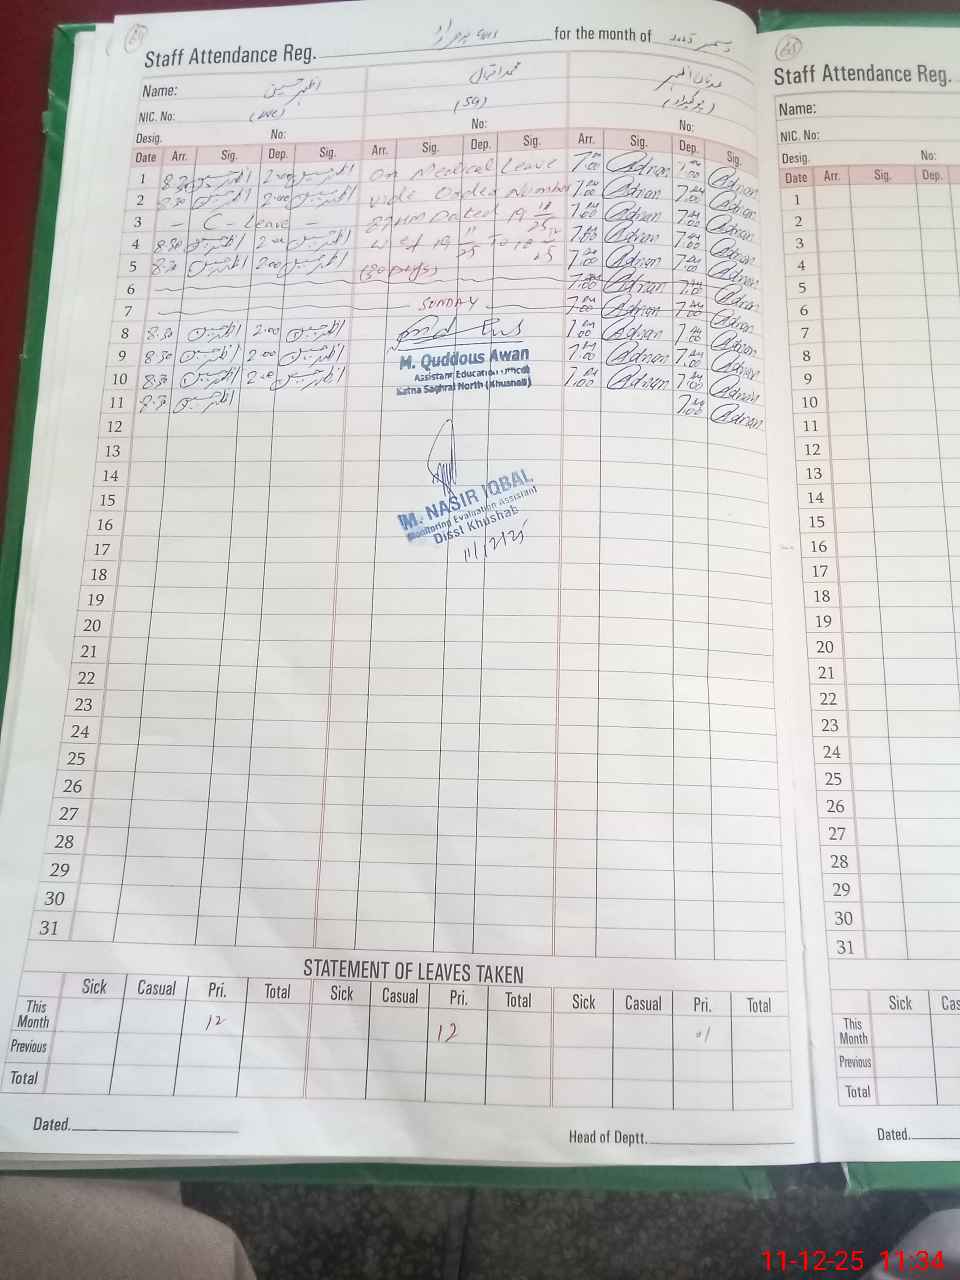 Staff Attendance Reg. for the month of دسمبر 2025
Name: اظہر حسین محمد اقبال عدنان اظہر
NIC. No: (SG) (چوکیدار)
Desig. No: No: No:
Date Arr. Sig. Dep. Sig. Arr. Sig. Dep. Sig. Arr. Sig. Dep. Sig.
1 8:30 اظہر حسین 2:00 اظہر حسین On Medical Leave 7:00 Adnan 7:00 Adnan
2 8:30 اظہر حسین 2:00 اظہر حسین vide Order Number 7:00 Adnan 7:00 Adnan
3 - C - Leave - Dated 19 7:00 Adnan 7:00 Adnan
4 8:30 اظہر حسین 2:00 اظہر حسین w.e.f 19 11/25 To 18 12/25 7:00 Adnan 7:00 Adnan
5 8:30 اظہر حسین 2:00 اظہر حسین (30 Days) 7:00 Adnan 7:00 Adnan
6 7:00 Adnan 7:00 Adnan
7 SUNDAY 7:00 Adnan 7:00 Adnan
8 8:30 اظہر حسین 2:00 اظہر حسین 7:00 Adnan 7:00 Adnan
9 8:30 اظہر حسین 2:00 اظہر حسین 7:00 Adnan 7:00 Adnan
10 8:30 اظہر حسین 2:00 اظہر حسین 7:00 Adnan 7:00 Adnan
11 8:30 اظہر حسین 7:00 Adnan
M. Quddous Awan
Assistant Education Officer
Katha Saghral North (Khushab)
12
13
14
15
16
17
M. NASIR IQBAL
Monitoring Evaluation Assistant
Disst Khushab
11/12/25
18
19
20
21
22
23
24
25
26
27
28
29
30
31
STATEMENT OF LEAVES TAKEN
Sick Casual Pri. Total Sick Casual Pri. Total Sick Casual Pri. Total
This Month 12 12 01
Previous
Total
Dated. Head of Deptt.
65
Staff Attendance Reg.
Name:
NIC. No:
Desig. No:
Date Arr. Sig. Dep.
1
2
3
4
5
6
7
8
9
10
11
12
13
14
15
16
17
18
19
20
21
22
23
24
25
26
27
28
29
30
31
Sick Cas
This Month
Previous
Total
Dated.
11-12-25 11:34